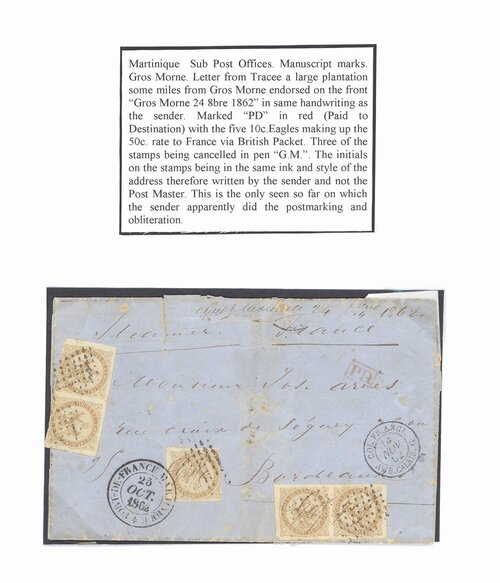 Martinique Sub Post Offices. Manuscript marks.
Gros Morne. Letter from Tracee a large plantation
some miles from Gros Morne endorsed on the front
“Gros Morne 24 8bre 1862” in same handwriting as
the sender. Marked “PD” in red (Paid to
Destination) with the five 10c.Eagles making up the
50c. rate to France via British Packet. Three of the
stamps being cancelled in pen “G.M.”. The initials
on the stamps being in the same ink and style of the
address therefore written by the sender and not the
Post Master. This is the only seen so far on which
the sender apparently did the postmarking and
obliteration.
Gros Morne 24 8bre 1862
Steamer France
PD
Monsieur Jos.
rue croix de Séguey
Bordeaux
FORT-DE-FRANCE MARTINIQUE
25
OCT.
1862
COL. FRANC.
14
NOV.
62
AMB. CALAIS